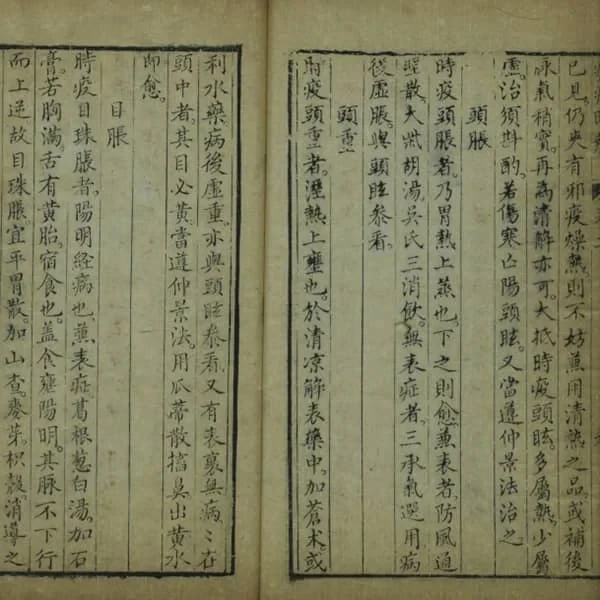 已見仍夾有邪疫燥熱則不妨蕪用清熱之品或補後
脉氣稍實再為清解亦可大抵時疫頭眩多屬熱少屬
虚治須斟酌若傷寒亡陽頭眩又當遵仲景法治之
頭脹
時疫頭脹者乃胃熱上蒸也下之則愈蕪表者防風通
聖散大柴胡湯吳氏三消飲無表症者三承氣選用病
後虛脹與頭眩叅看
頭重
時疫頭重者溼熱上壅也於清凉解表藥中加蒼术或
利水藥病後虛重亦與頭眩叅看又有表裏無病〻在
頭中者其目必黄當遵仲景法用瓜蒂散搐鼻出黄水
即愈
目脹
時疫目珠脹者陽明経病也蕪表症葛根葱白湯加石
膏若胸滿舌有黄胎宿食也盖食壅陽明其脉不下行
而上逆故目珠脹宜平胃散加山查麥芽枳殼消導之